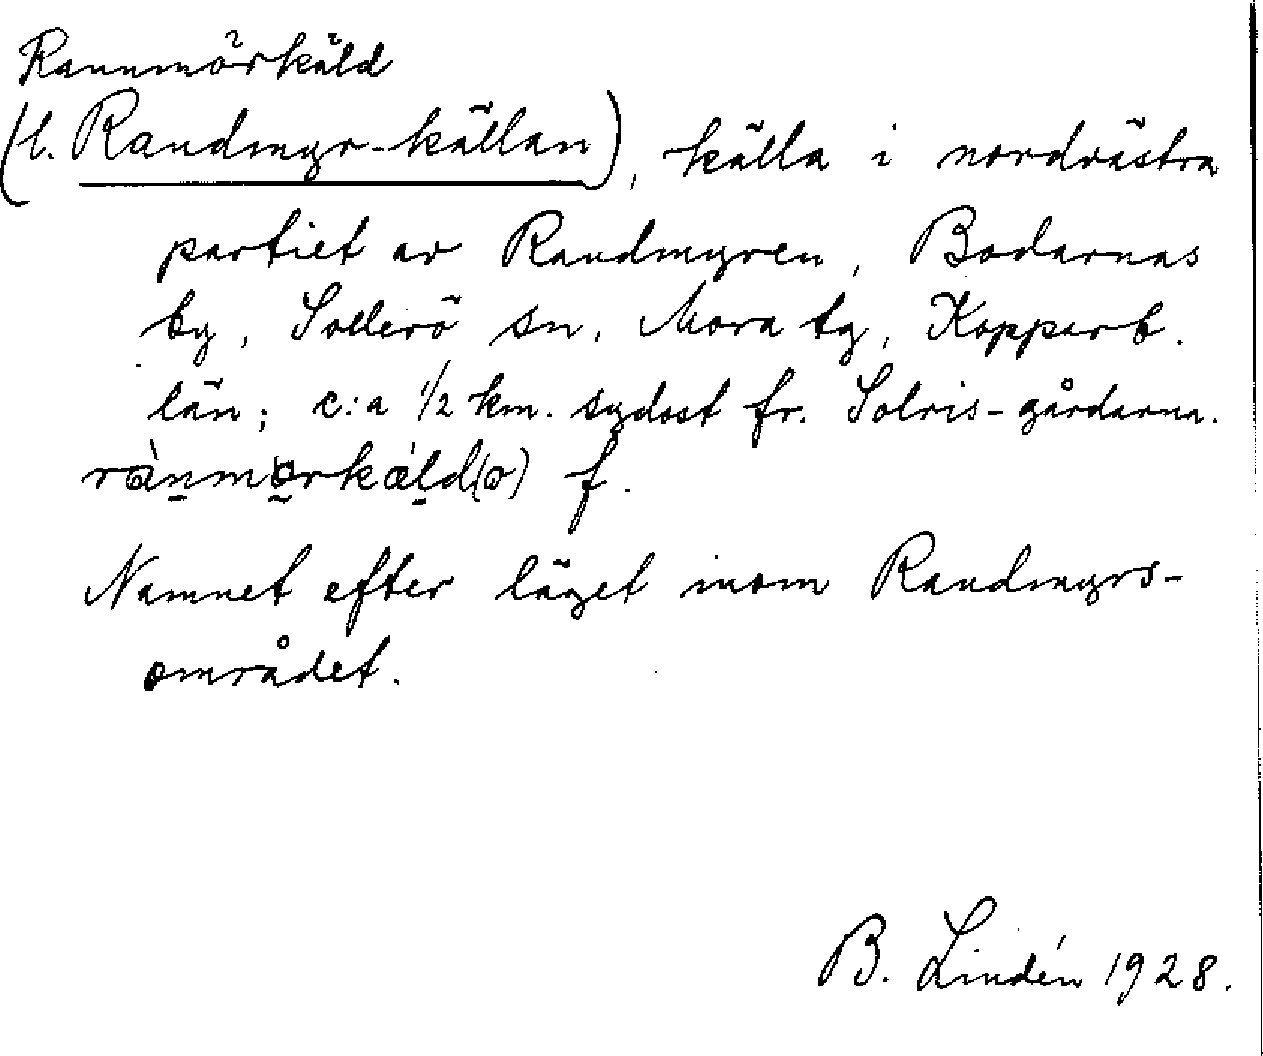 Rannmörkäld
(l. Randmyr-källan), källa i nordvästra
partiet av Randmyren, Bodarnas
by, Sollerö sn, Mora tg, Kopparb.
län; c:a 1/2 km. sydost fr. Solris-gårdarna.
rànmörkæ̀ld(o) f.
Namnet efter läget inom Randmyrs-
området.
B. Lindén 1928.